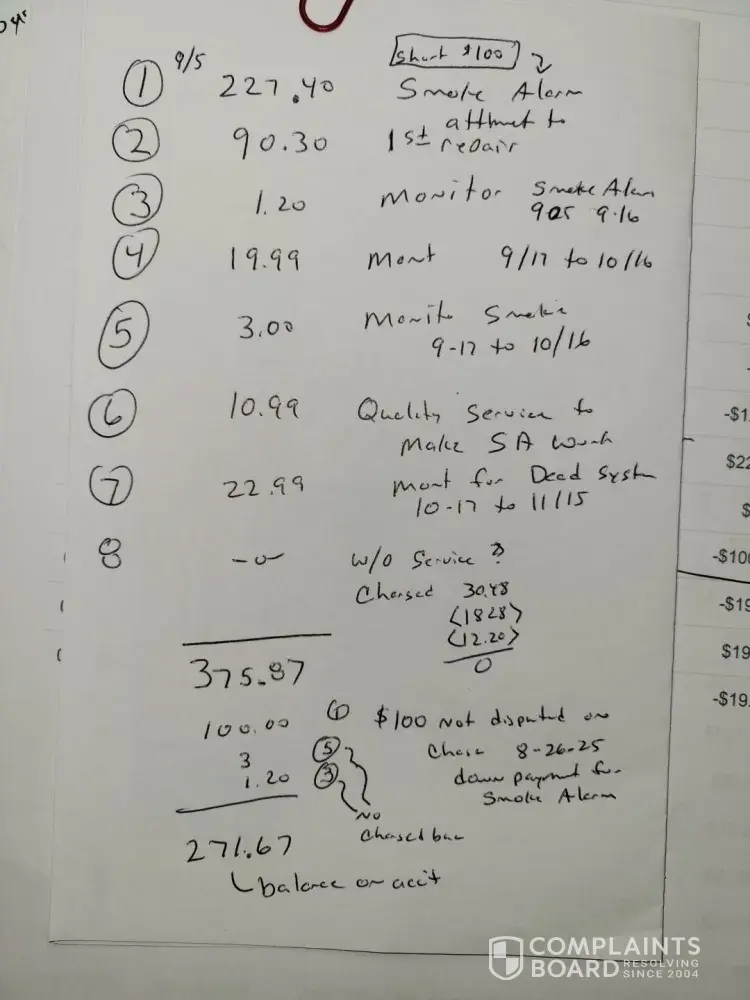 Short $100
① 9/5 227.40 Smoke Alarm
② 90.30 1st attmet to
repair
③ 1.20 Monitor Smoke Alam
905 9-16
④ 19.99 Mont 9/17 to 10/16
⑤ 3.00 Monito Smoke
9-17 to 10/16
⑥ 10.99 Quality Service to
Make SA Work
⑦ 22.99 Mont for Dead System
10-17 to 11/15
8 -0- W/O Service ?
Charged 30.48
<18.28>
<12.20>
0
375.87
100.00 ① $100 Not disputed on
Chase 8-26-25
3 ⑤
1.20 ③ down payment for
Smoke Alarm
No
Charged bac
271.67
balance on acct
-$1
$22
$
-$100
-$19
$19
-$19.
COMPLAINTS
BOARD RESOLVING
SINCE 2004